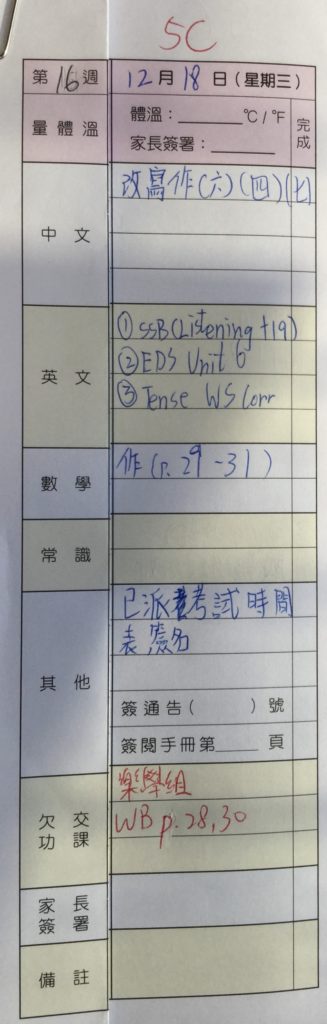 5C
第16週 12月18日(星期三)
量體溫 體溫：______℃/℉ 完成
家長簽署：______
中文 改寫作(六)(四)(七)
英文 ①SSB(Listening +19)
②EDS Unit 6
③Tense WS Corr
數學 作(p. 29 -31)
常識
其他 已派考試時間
表簽名
簽通告(   )號
簽閱手冊第____頁
欠交功課 樂學組
WB p.28,30
家長簽署
備註